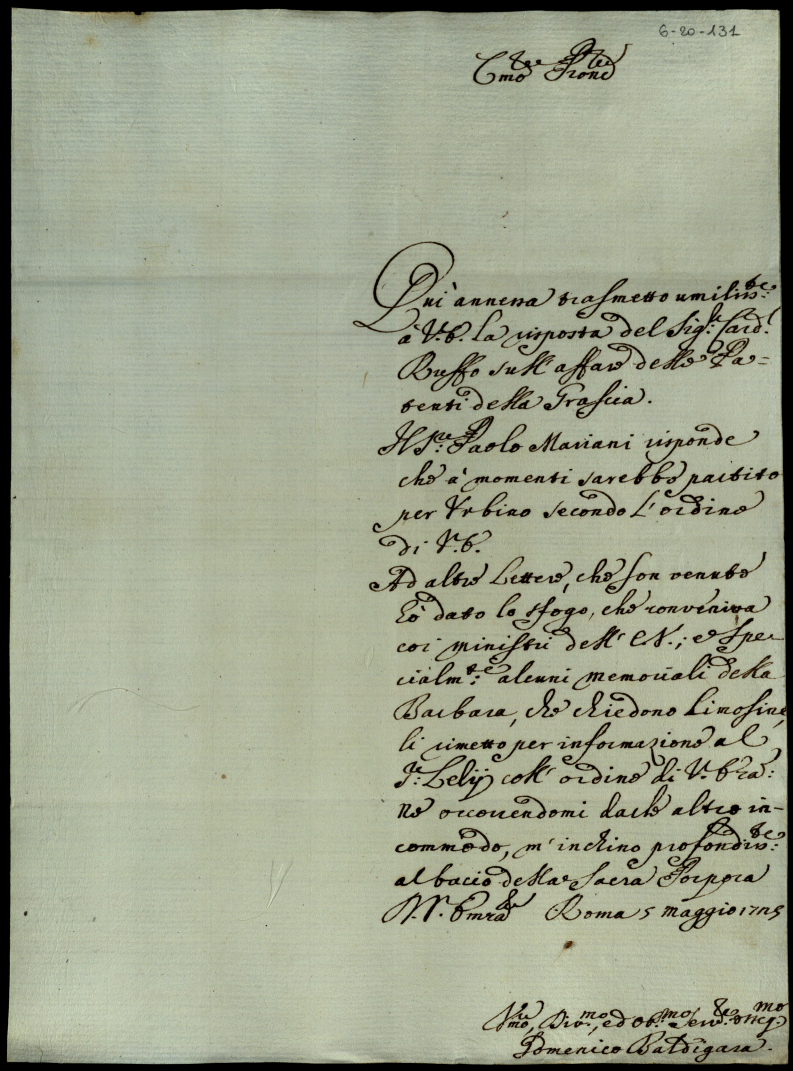 6-20-131
Emo e Rmo Sigre Prone
Qui annessa trasmetto umilisste:
a V. E. la risposta del Sigr. Card.l
Ruffo sull' affare delle Pa=
tenti della Grascia.
Il Sre: Paolo Mariani risponde
che à momenti sarebbe partito
per Urbino secondo l' ordine
di V. E.
Ad altre Lettere, che son venute
hò dato lo sfogo, che conveniva
coi ministri dell' E. V.; e spe-
cialmte: alcuni memoriali della
Barbara, che chiedono limosine,
li rimetto per informazione al
Sr. Lelij coll' ordine di V. Emza:
Ne occorrendomi darle altro in-
commodo, m' inchino profondiste:
al bacio della Sacra Porpora
D. V. Emza Roma 5 maggio 1725
Vmo, Divmo, ed obmo Serre ossqmo
Domenico Baldigara.